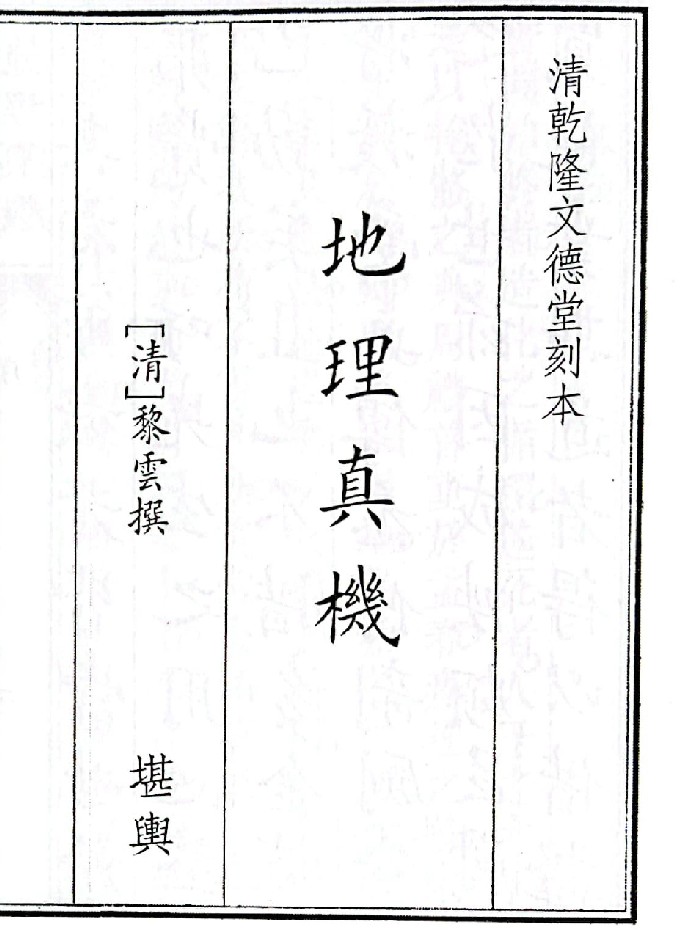 清乾隆文德堂刻本
地理真機
[清]黎雲撰
堪輿